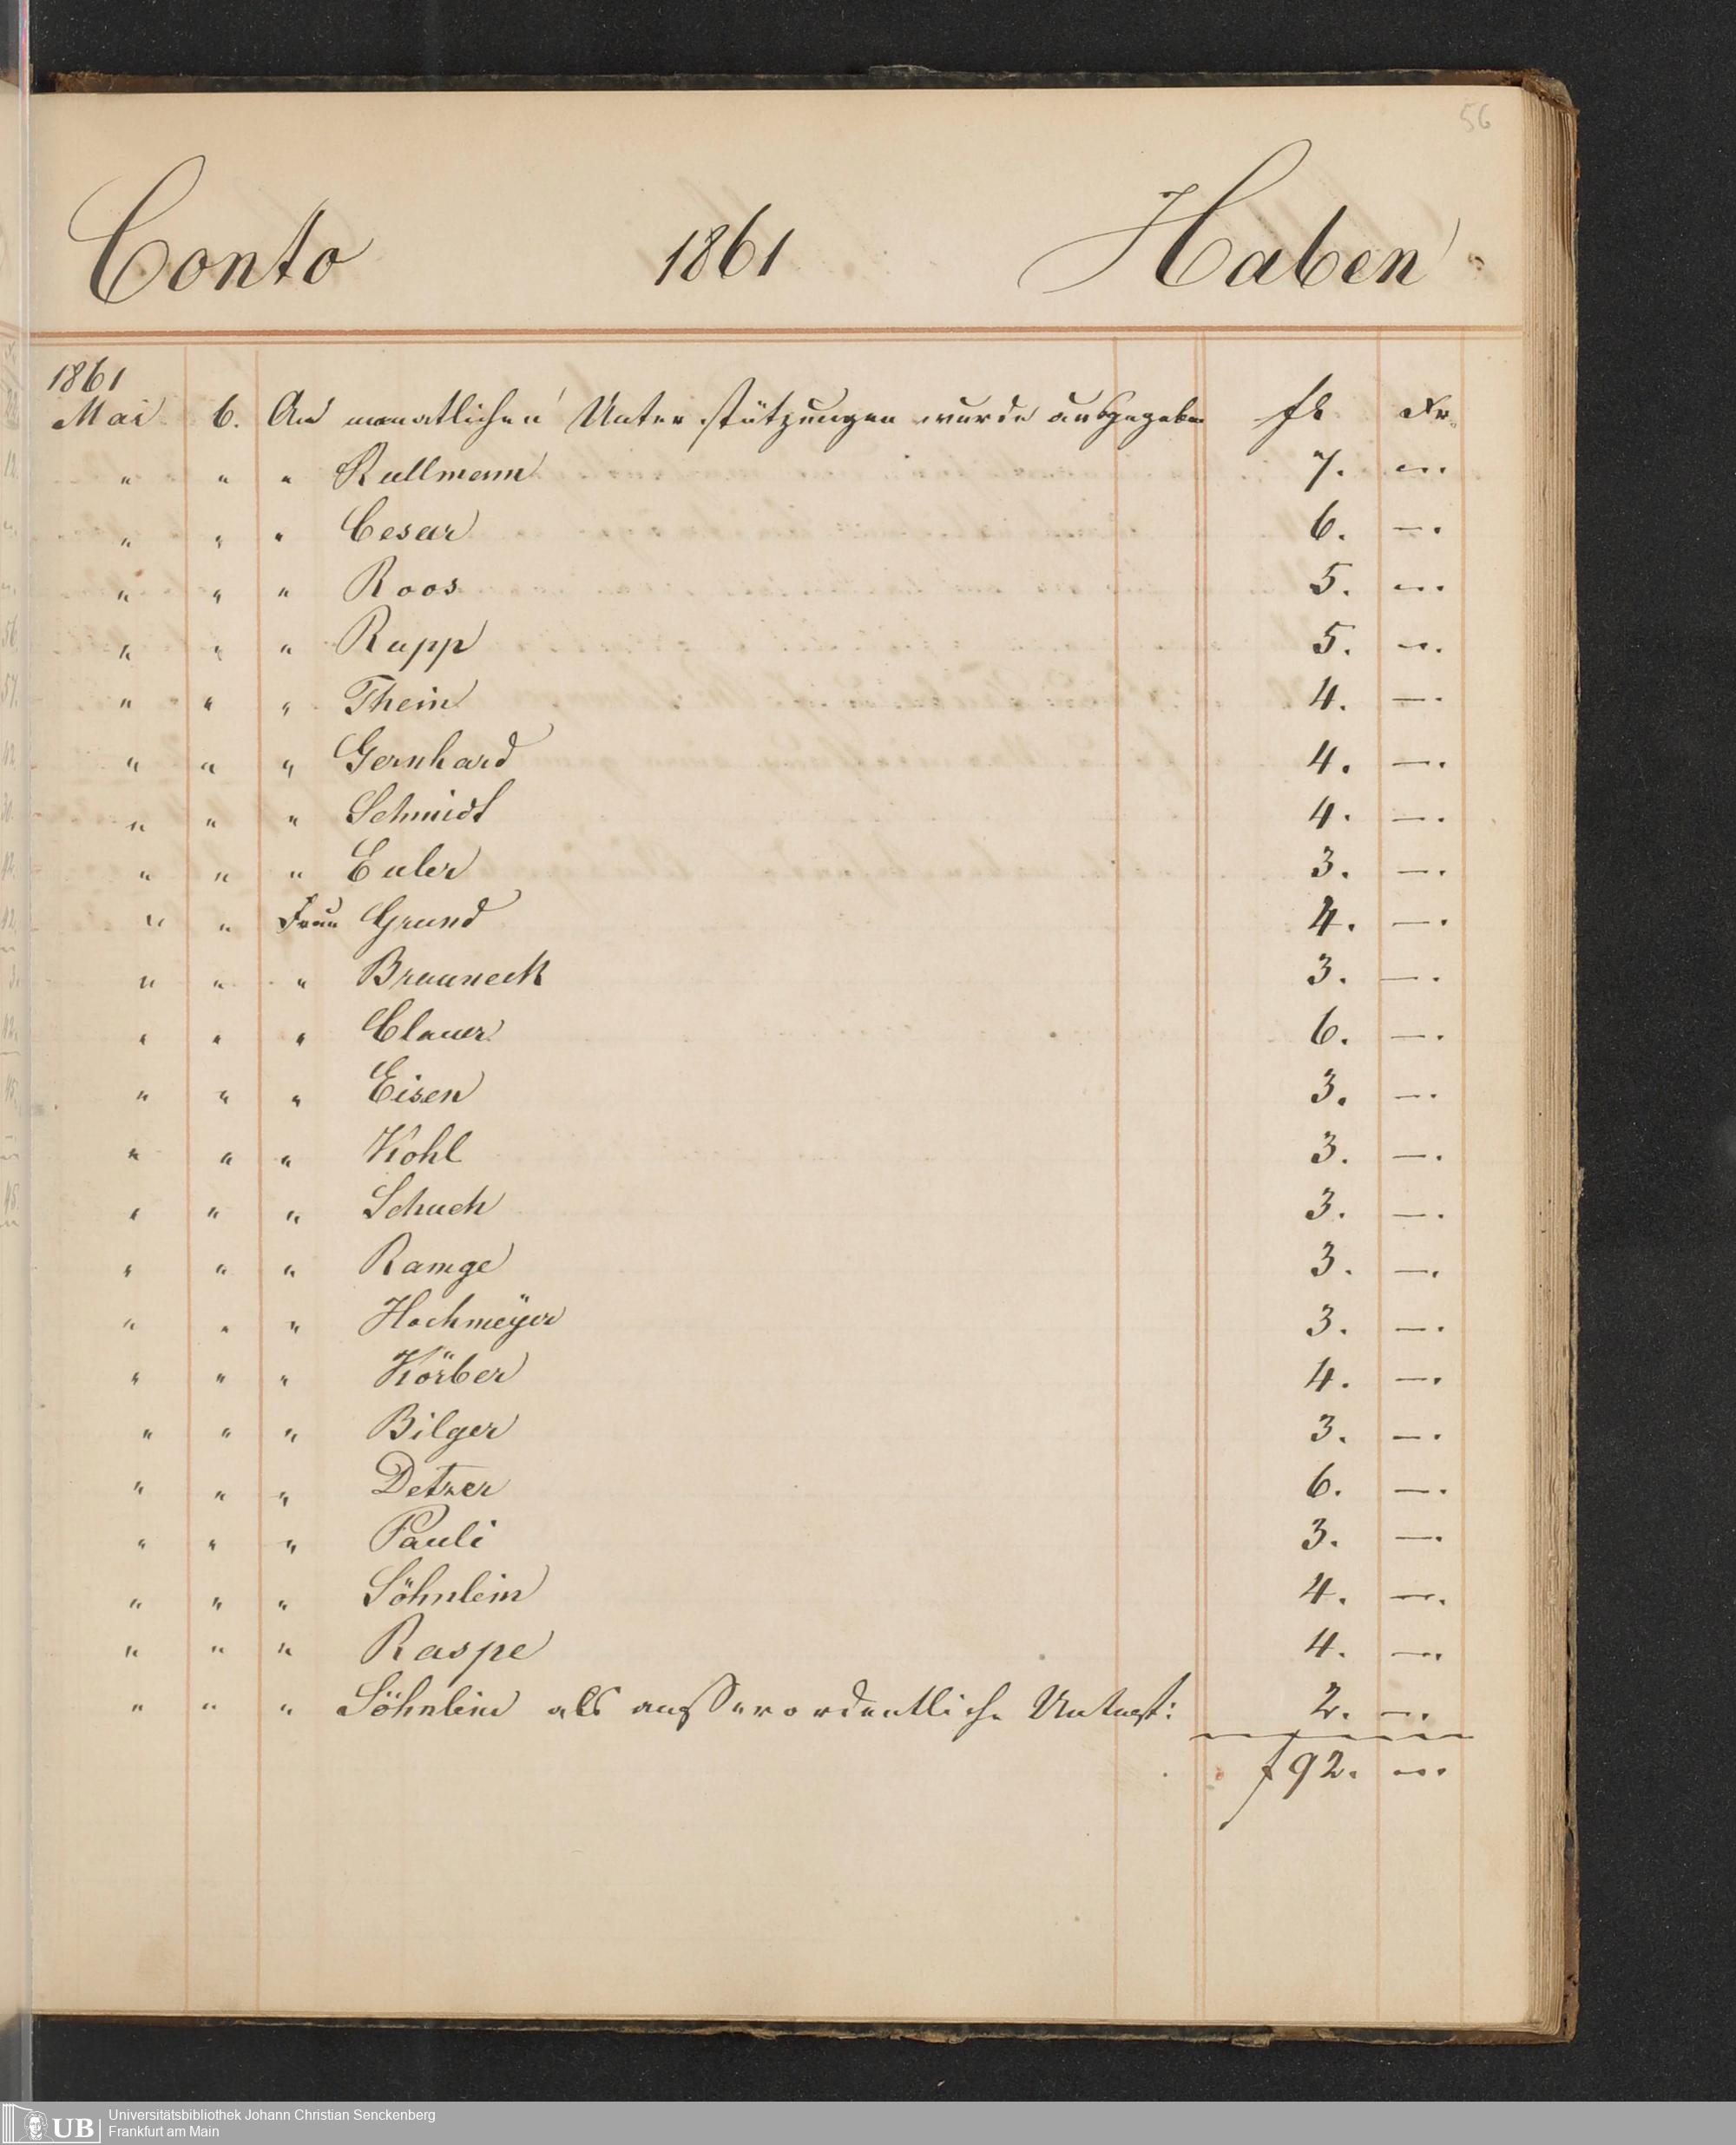 56
Conto 1861 Haben
1861
Mai 6. An monatlichen Unterstützungen wurde ausgegeben fl Kr.
" " " Kullmann 7. —.
" " " Cesar 6. —.
" " " Roos 5. —.
" " " Rupp 5. —.
" " " Thein 4. —.
" " " Gernhard 4. —.
" " " Schmidt 4. —.
" " " Euler 3. —.
" " Frau Grund 4. —.
" " " Brauneck 3. —.
" " " Clauer 6. —.
" " " Eisen 3. —.
" " " Kohl 3. —.
" " " Schuch 3. —.
" " " Ramge 3. —.
" " " Hochmeÿer 3. —.
" " " Körber 4. —.
" " " Bilger 3. —.
" " " Detzer 6. —.
" " " Pauli 3. —.
" " " Söhnlein 4. —.
" " " Raspe 4. —.
" " " Söhnlein als ausserordentliche Unterst: 2. —.
f 92. —.
UB Universitätsbibliothek Johann Christian Senckenberg
Frankfurt am Main